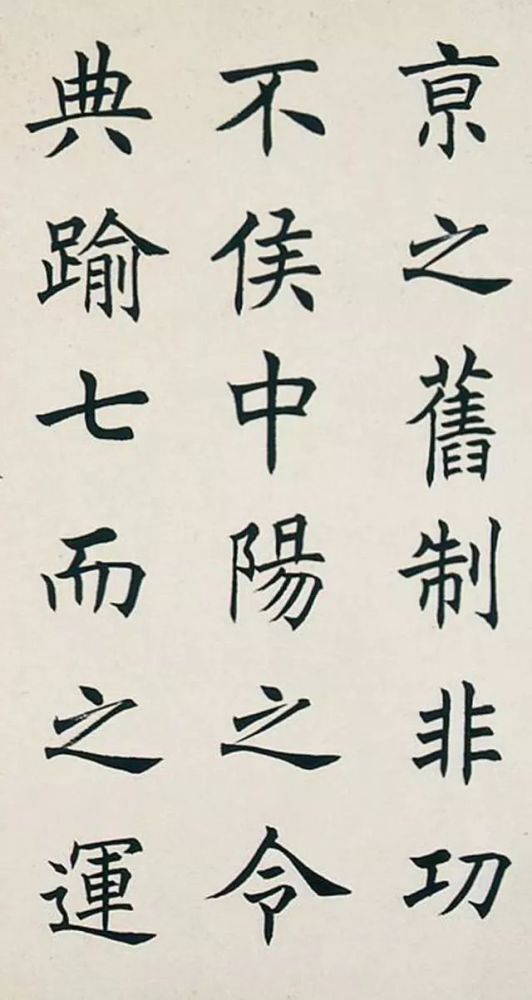 亰之舊制非功
不侯中陽之令
典踰七而之運